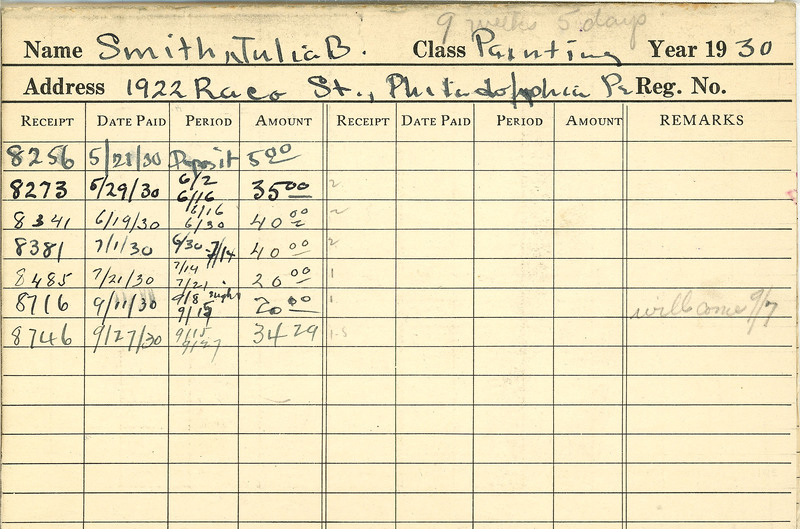 9 weeks 5 days
Name Smith, Julia B. Class Painting Year 1930
Address 1922 Race St., Philadelphia Pa Reg. No.
RECEIPT DATE PAID PERIOD AMOUNT RECEIPT DATE PAID PERIOD AMOUNT REMARKS
8256 5/21/30 Deposit 5.00
8273 5/29/30 6/2 6/16 35.00 2
8341 6/19/30 6/16 6/30 40.00 2
8381 7/1/30 6/30 - 7/14 40.00 2
8485 7/21/30 7/14 7/21 20.00 1
8716 9/11/30 9/8 9/15 20.00 1 will come 9/7
8746 9/27/30 9/15 9/27 34.29 1.5